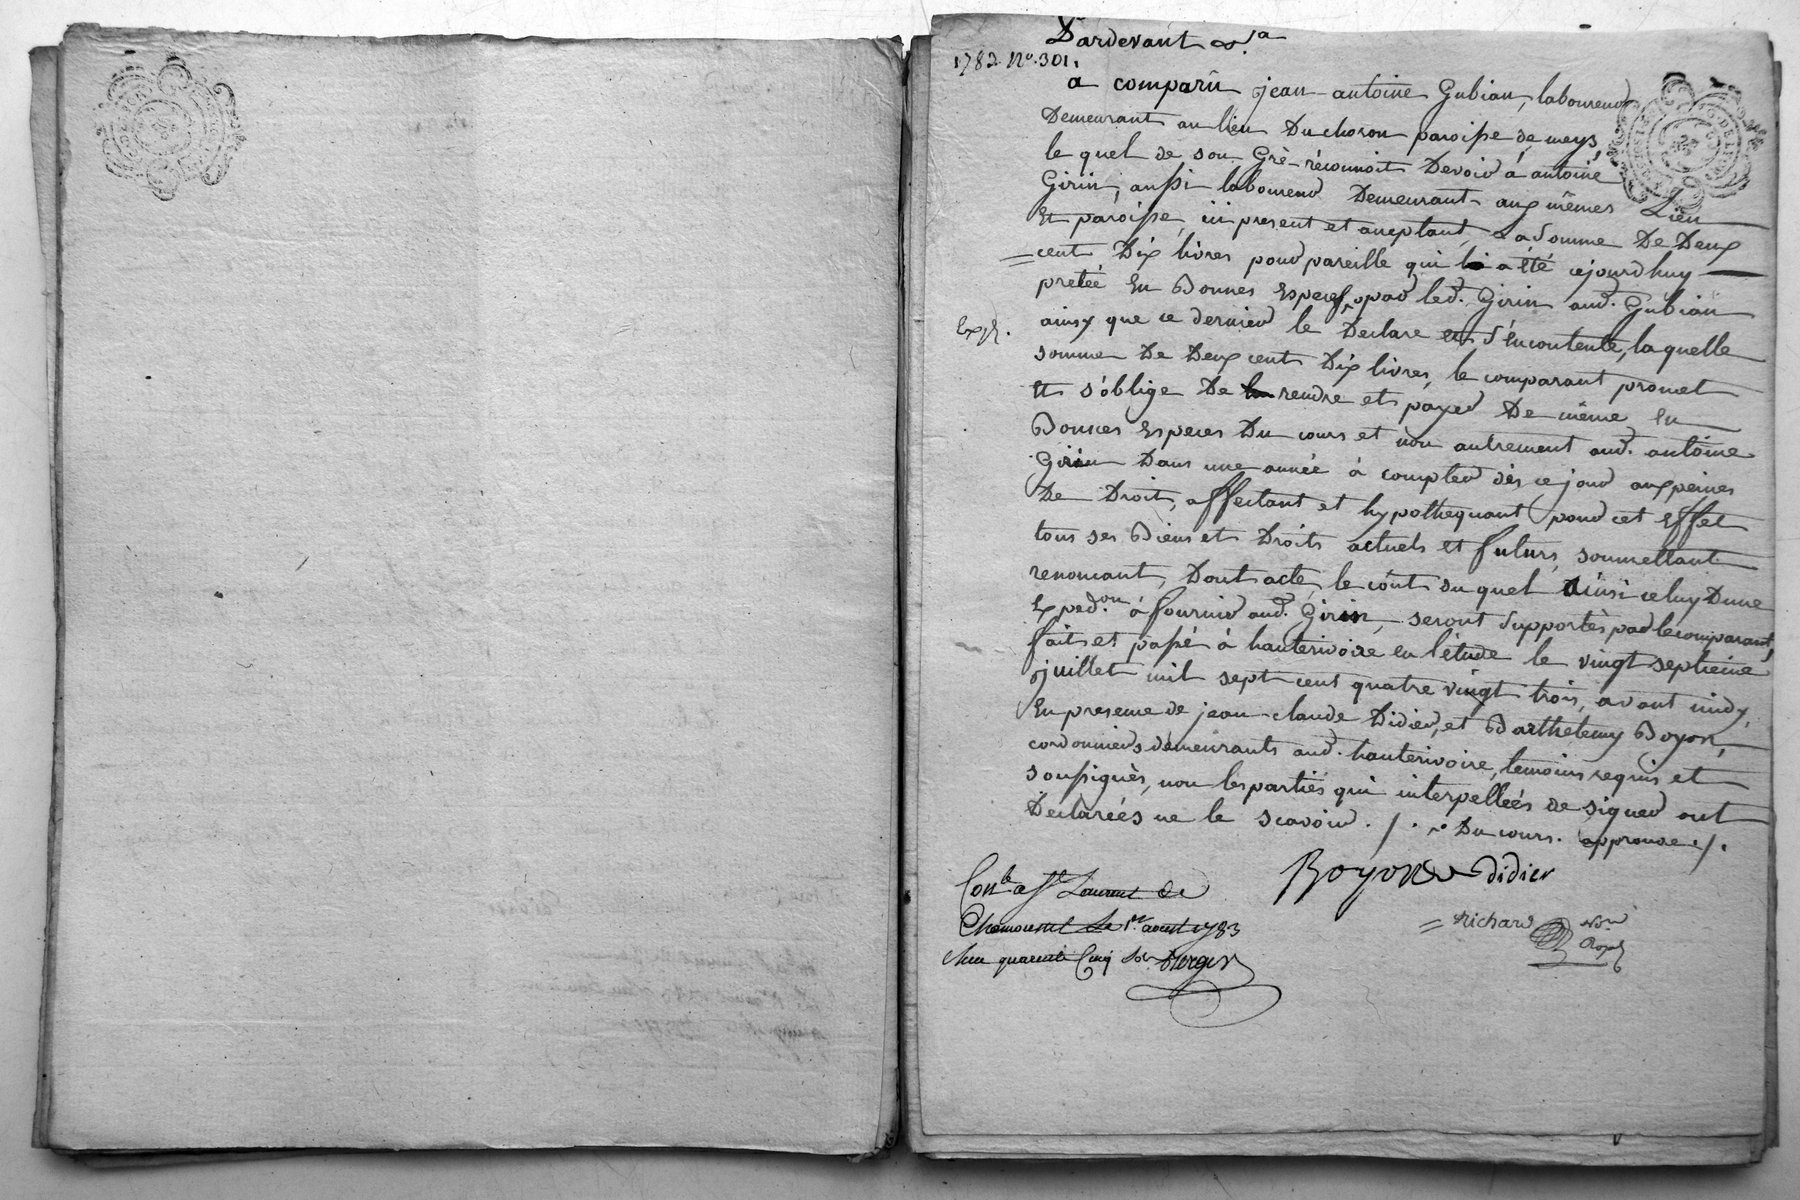 Pardevant &.a
1782. No. 301.
a comparû jean-antoine Gubian, laboureur
Demeurant au lieu Du choron paroisse de meys,
le quel de son Gré-réconnoit Devoir à antoine
Girin, aussi laboureur Demeurant aux mêmes Lieu
Et paroisse, ici present et aceptant, La Somme De Deux
cent Dix livres pour pareille qui a été cejourd'huy
pretée En Bonnes Especes, par led. Girin aud. Gubian
ainsy que ce dernier le Declare et s'en contente, laquelle
Exp.
somme De Deux cent Dix livres, le comparant promet
Et s'oblige De rendre et payer De même En
Bonnes Especes Du cours et non autrement aud. antoine
Girin Dans une année à compter dès ce jour aux peines
De Droit, affectant et hypothequant pour cet Effet
tous ses Biens et Droits actuels et futurs, soumettant
renoncant, Dont acte, le coût du quel Ainsi celuy Dune
Exped.on à fournir aud. Girin, seront Supportés par le comparant,
fait et passé à hauterivoire en l'étude le vingt septieme
juillet mil sept cent quatre vingt trois, avant midy,
En presence de jean-claude Didier, et Barthelemy Boyon,
cordonniers demeurants aud. hauterivoire, temoins requis et
soussignés, non les parties qui interpellées de signer ont
Declarées ne le scavoir. /. Du cours. approuvé ./.
Boyon Didier
Con.le a St Laurent de
Chamousset Le 1er aoust 1783
Richard No.re
Royal
quarente Cinq sols